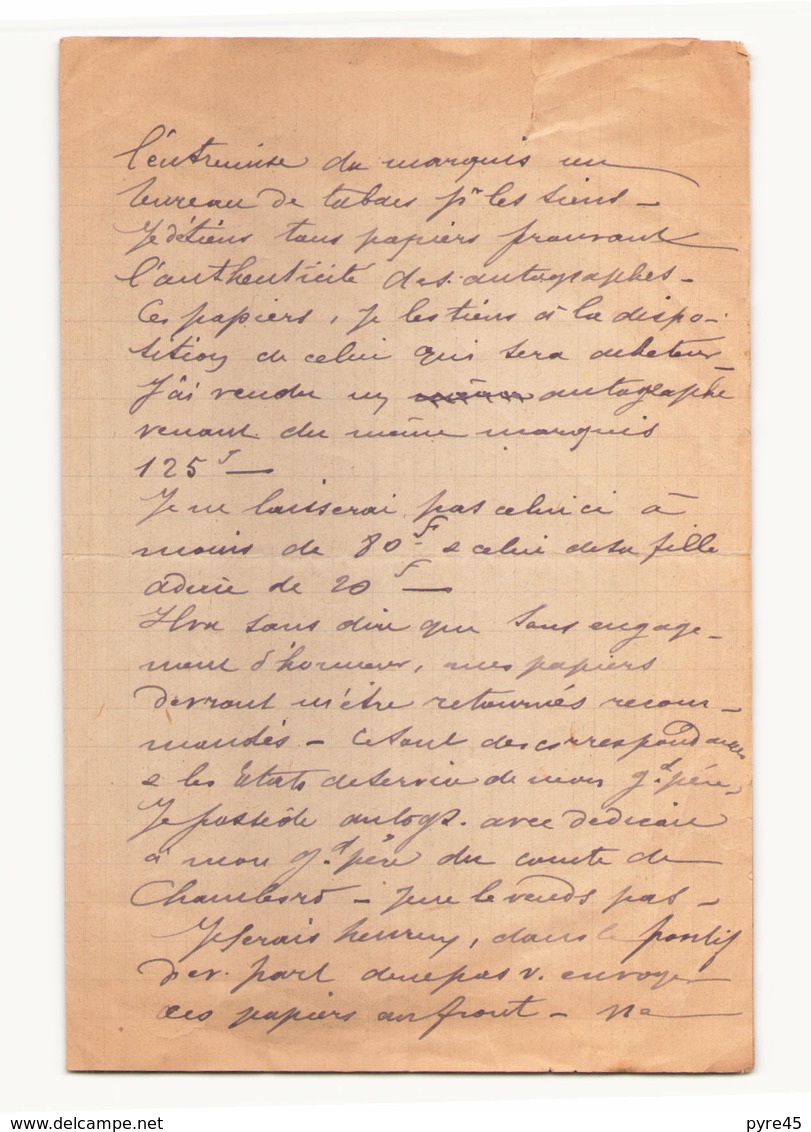 l'entremise du marquis un
bureau de tabacs pr les siens -
Je détiens tous papiers prouvant
l'authenticité des autographes -
Ces papiers, je les tiens à la dispo-
sition de celui qui sera acheteur -
J'ai vendu un autographe
venant du même marquis
125f -
Je ne laisserai pas celui ci à
moins de 80f & celui de sa fille
de 20f -
Il va sans dire que sous engage-
ment d'honneur, mes papiers
devront m'être retournés recom-
mandés - Ce sont des correspondances
& les états de service de mon gd père,
Je possède autogr. avec dédicace
à mon gd père du comte de
Chambord - je ne le vends pas -
Je serais heureux, dans le
de v. part de ne pas v. envoyer
ces papiers au front - Ne
www.delcampe.net
pyre45